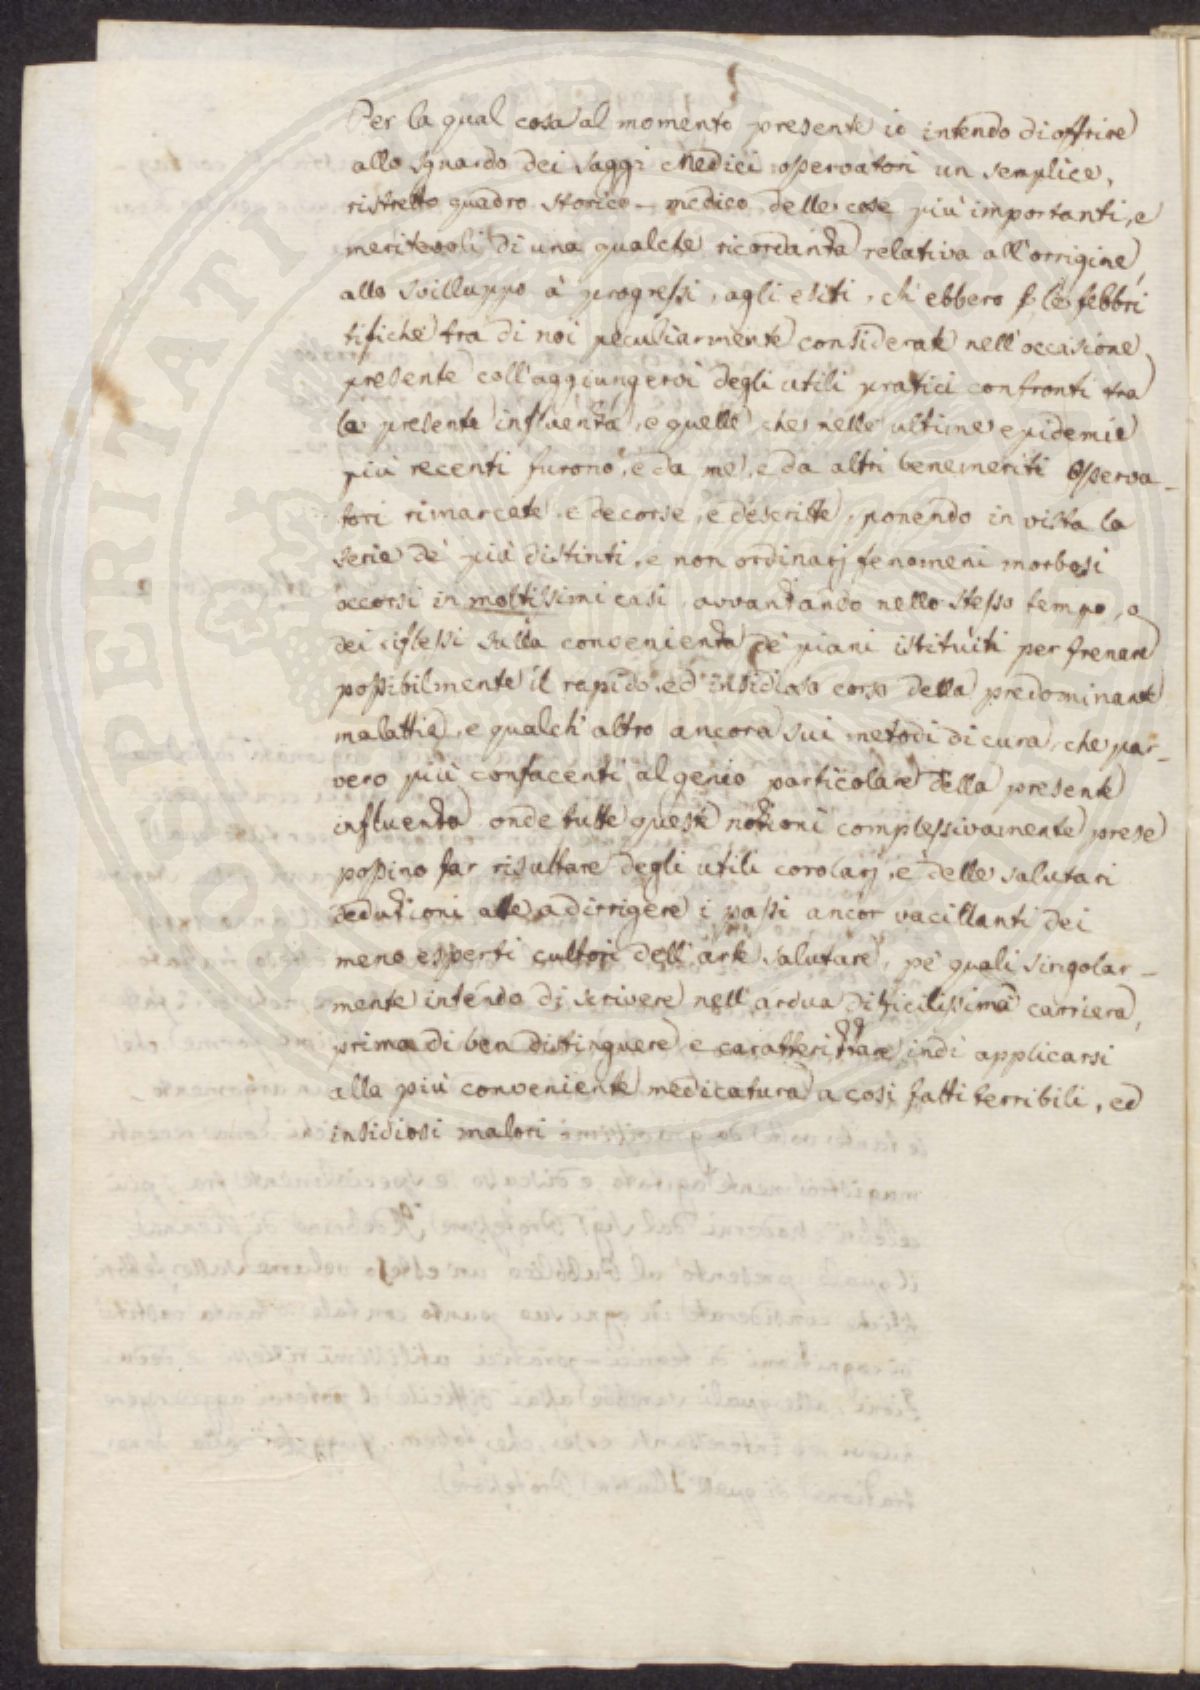 Per la qual cosa al momento presente io intendo di offrire
allo sguardo dei saggi Medici osservatori un semplice,
ristretto quadro storico-medico delle cose più importanti, e
meritevoli di una qualche ricordanza relativa all'origine,
allo svilluppo a' progressi, agli esiti, ch'ebbero le febbri
tifiche tra di noi peculiarmente considerate nell'occasione
presente coll'aggiungervi degli utili pratici confronti tra
la presente influenza, e quelle, che nelle ultime epidemie
più recenti furono, e da me, e da altri benemeriti osserva-
tori rimarcate, e decorse, e descritte, ponendo in vista la
serie de' più distinti, e non ordinarj fenomeni morbosi
occorsi in moltissimi casi, avvanzando nello stesso tempo, o
dei riflessi sulla convenienza de' piani istituiti per frenare
possibilmente il rapido, ed insidioso corso della predominante
malattia, e qualch'altro ancora sui metodi di cura, che par-
vero più confacenti al genio particolare della presente
influenza onde tutte queste nozioni complessivamente prese
possino far risultare degli utili corolarj, e delle salutari
deduzioni atte a dirrigere i passi ancor vacillanti dei
meno esperti cultori dell'arte salutare, pe' quali singolar-
mente intendo di scrivere nell'ardua difficilissima carriera,
prima di ben distinguere e caratterizzare indi applicarsi
alla più conveniente medicatura a così fatti terribili, ed
insidiosi malori
PERITATI